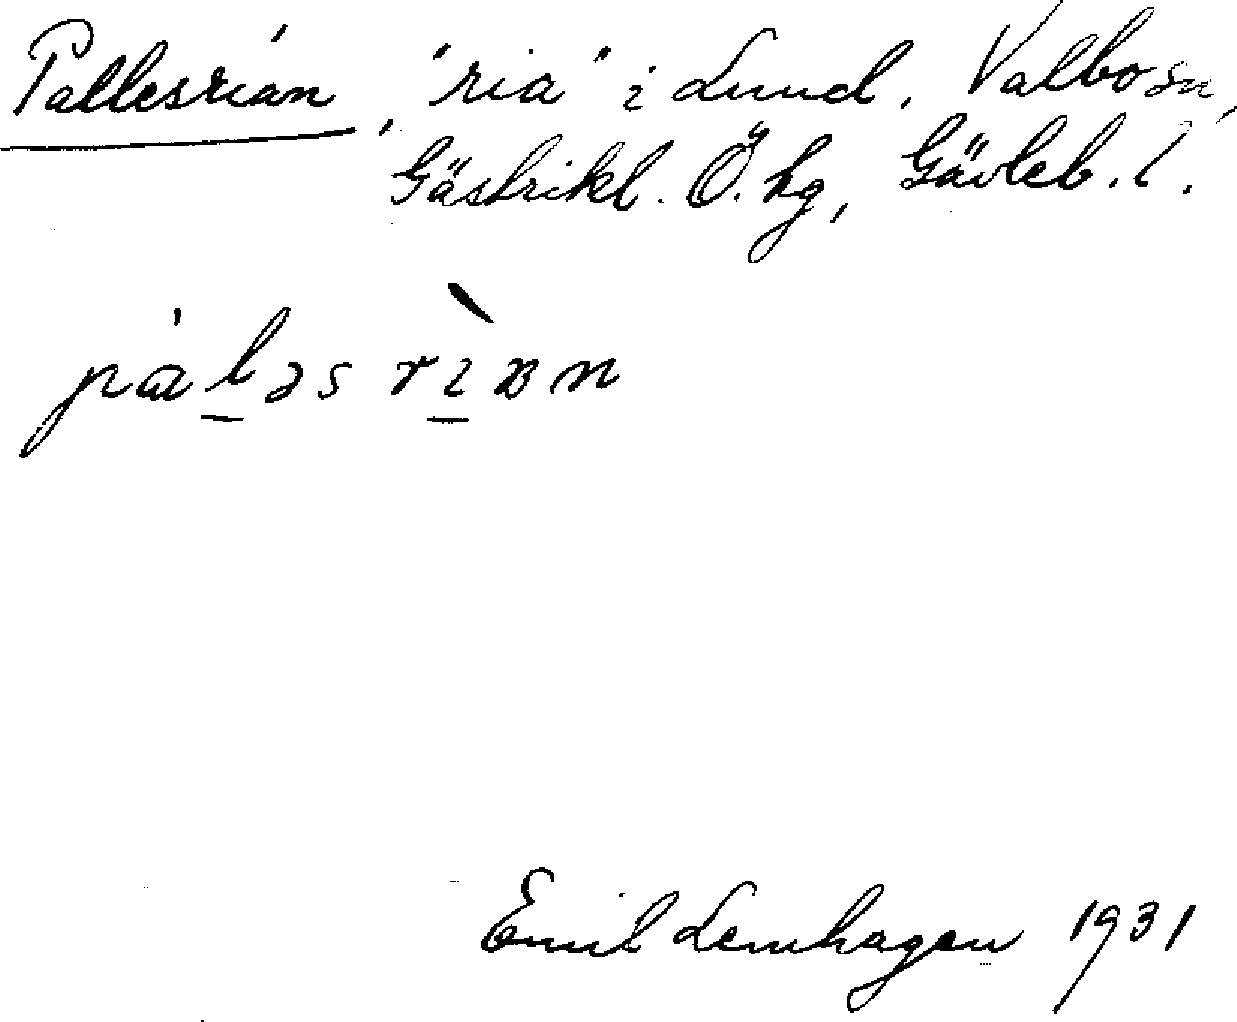 Pallesrian, "ria" i Lund. Valbo sn,
Gästrikl. Ö. hg, Gävleb. l.
pàləs rìan
Emil Lenhagen 1931